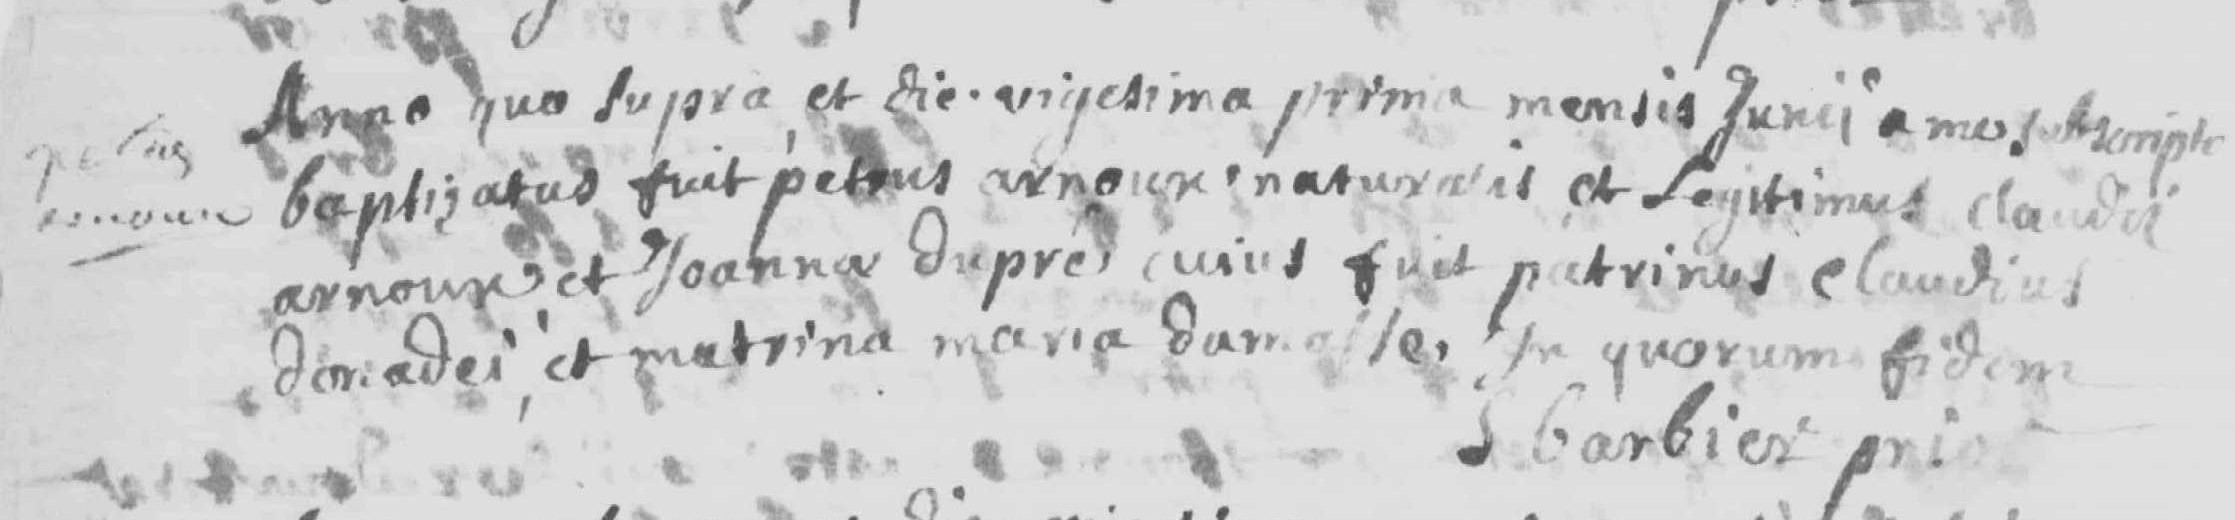 Anno quo supra et die vigesima prima mensis Junij a me subscripto
petrus
baptizatus fuit petrus arnoux naturalis et Legitimus claudii
arnoux
arnoux et Joanna dupré cuius fuit patrinus claudius
donadei et matrina maria damasse, In quorum fidem
S barbier prior